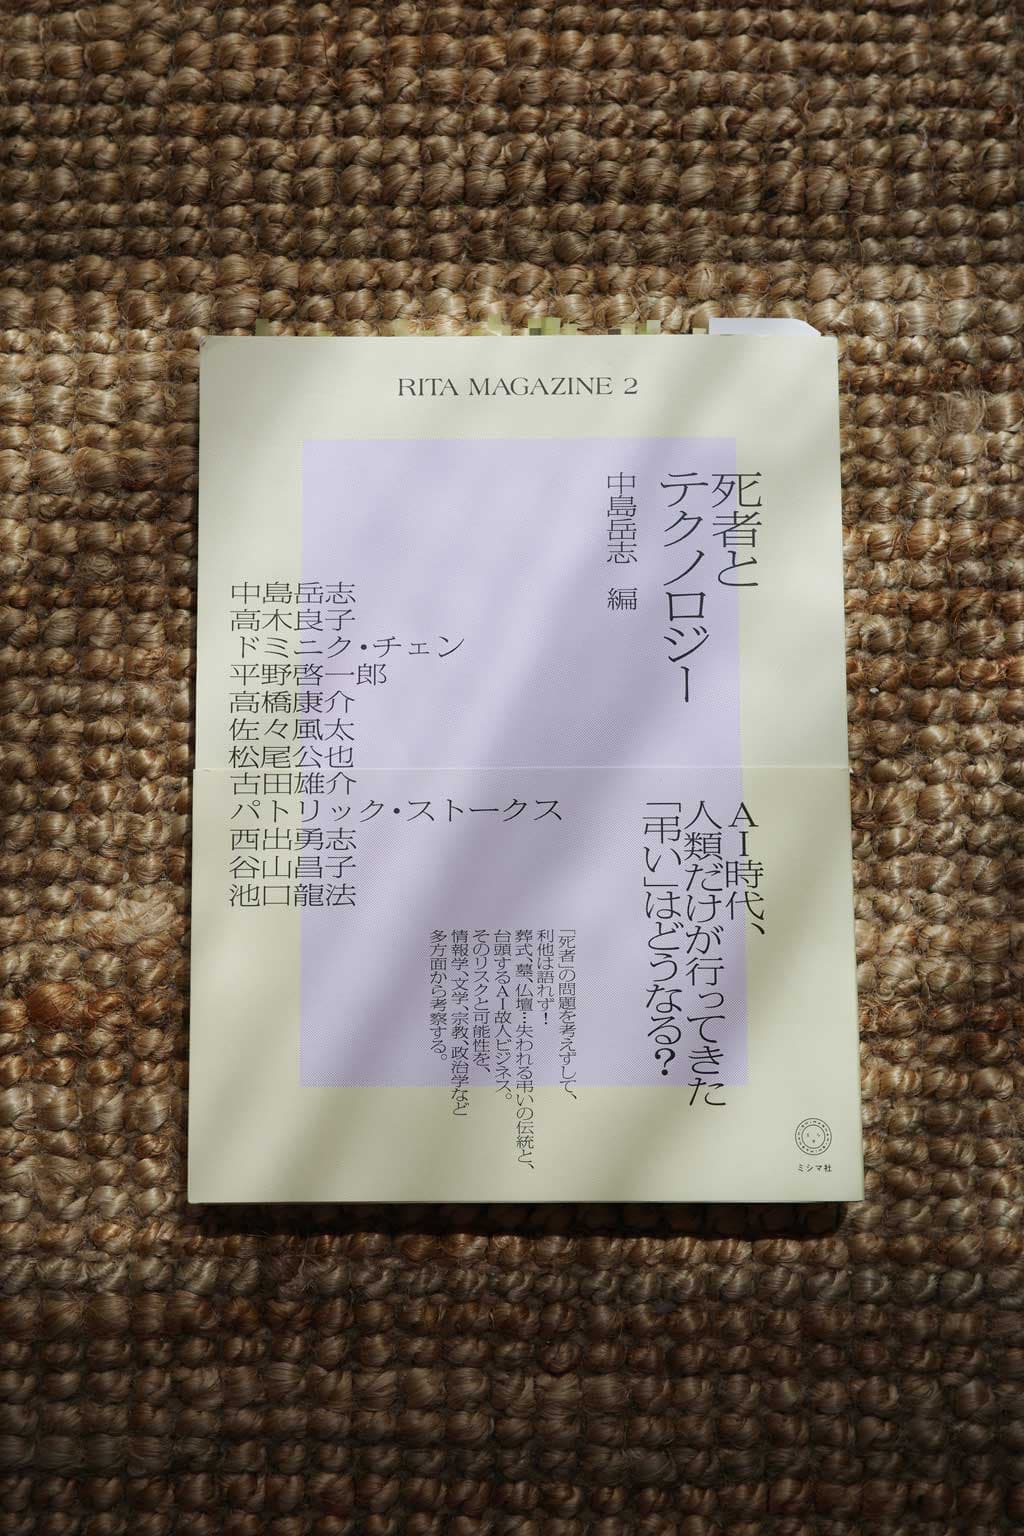 RITA MAGAZINE 2
死者と
テクノロジー
中島岳志 編
中島岳志
高木良子
ドミニク・チェン
平野啓一郎
高橋康介
佐々風太
松尾公也
古田雄介
パトリック・ストークス
西出勇志
谷山昌子
池口龍法
AI時代、
人類だけが行ってきた
「弔い」はどうなる?
「死者」の問題を考えずして、
利他は語れず!
葬式、墓、仏壇…失われる弔いの伝統と、
台頭するAI故人ビジネス。
そのリスクと可能性を、
情報学、文学、宗教、政治学など
多方面から考察する。
ミシマ社